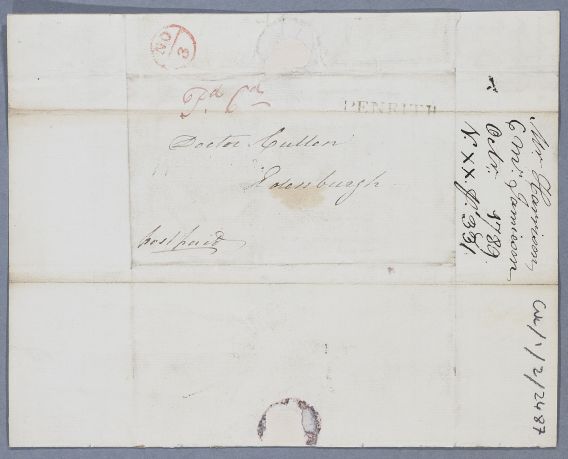 NO 3
Pd 6d
PENRITH
Doctor Cullen
Edenburgh
post paid
Mr. Harrison
C Mr. Jamieson
Octr. 1789
N. XX. p. 331
Cul/1/2/2487